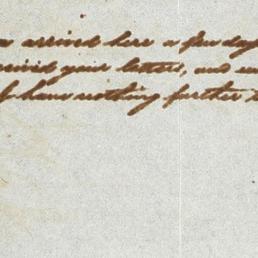 arrived here a few days
received your letters, and
I have nothing further